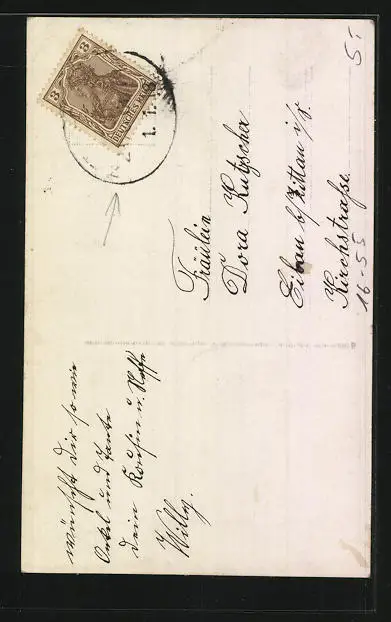 3 3
DEUTSCHES REICH
1. 1.
Fräulein
Dora Kutzscher
Eibau b/Zittau i/S.
Kirchstraße
16-55
5.-
wünscht Dir so wie
Onkel und Tante
dein Kousin u. Neffe
Willy.